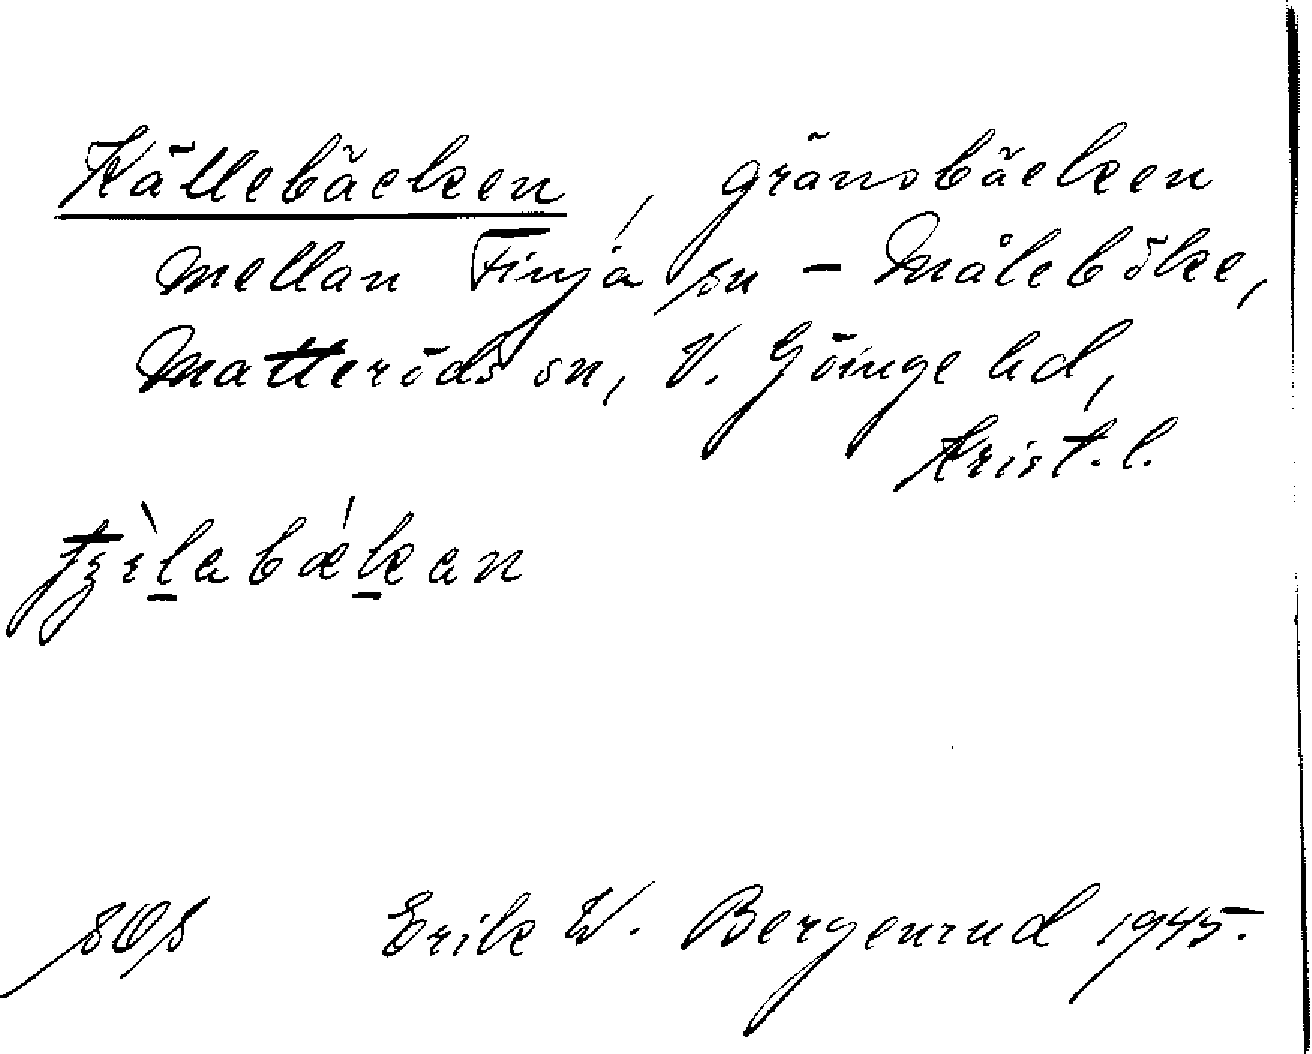 Källebäcken, gränsbäcken
mellan Finja sn - Måleböke,
Matteröds sn, V. Göinge hd,
Krist. l.
Erik W. Bergenrud 1945.